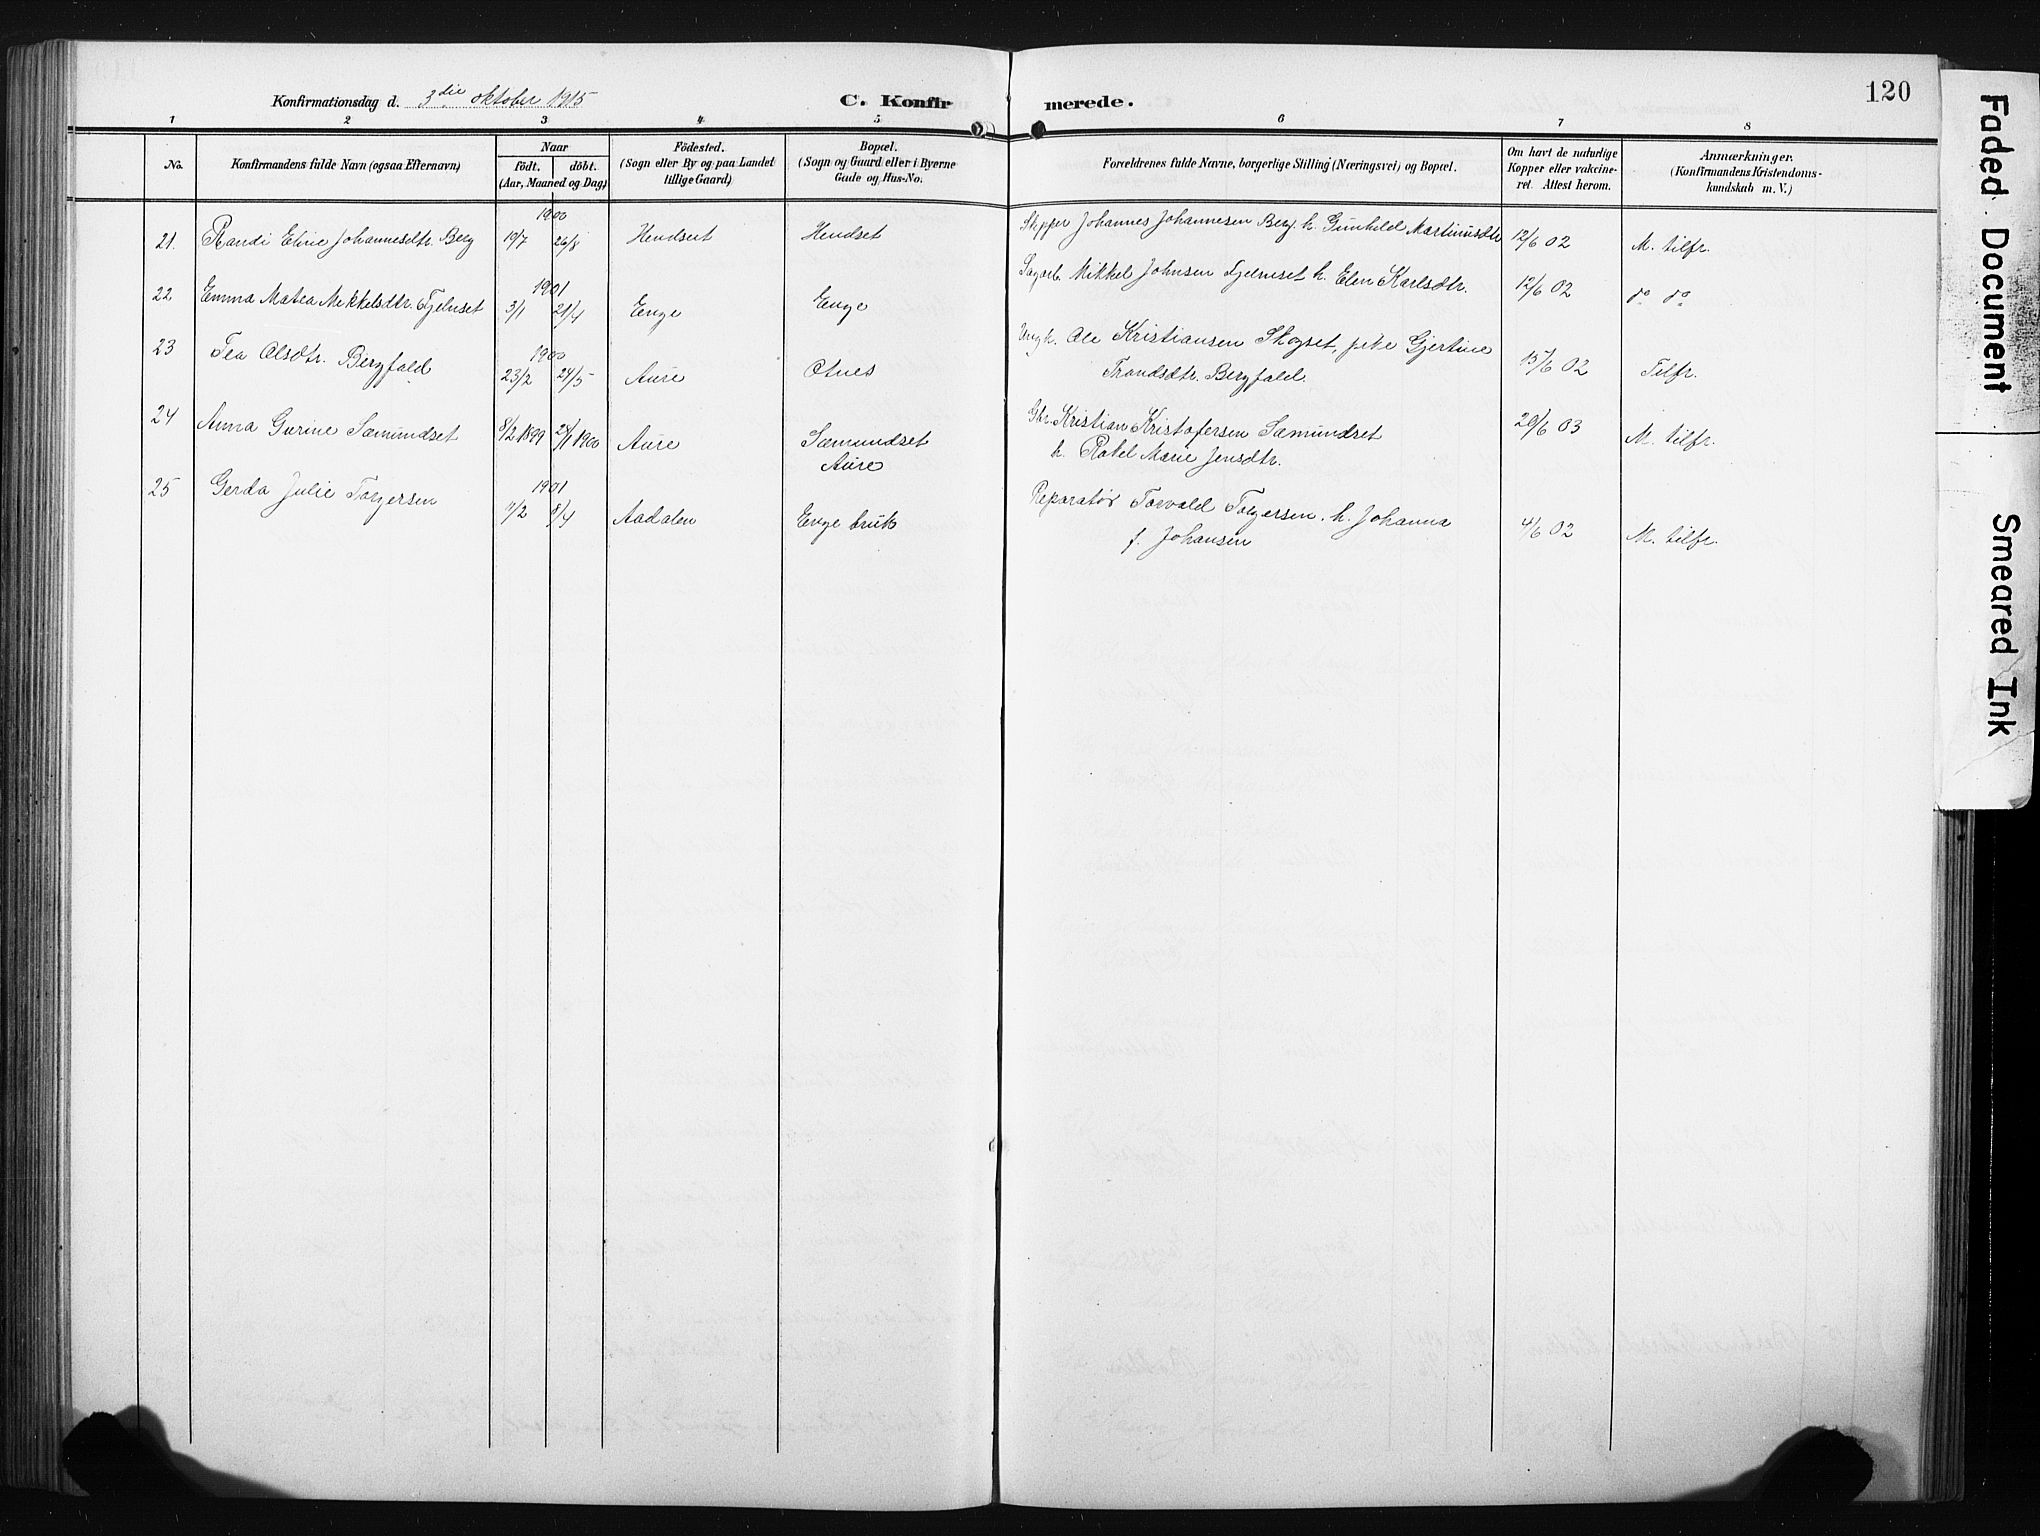 120
Konfirmationsdag d. 3die oktober 1915
C. Konfirmerede.
1 2 3 4 5 6 7 8
No.
Konfirmandens fulde Navn (ogsaa Efternavn)
Naar
födt. döbt.
(Aar, Maaned og Dag)
Födested.
(Sogn eller By og paa Landet
tillige Gaard)
Bopæl.
(Sogn og Gaard eller i Byerne
Gade og Hus-No.
Forældrenes fulde Navne, borgerlige Stilling (Næringsvei) og Bopæl.
Om havt de naturlige
Kopper eller vakcine-
ret. Attest herom.
Anmærkninger.
(Konfirmandens Kristendoms-
kundskab m. V.)
1900
21. Randi Eline Johannesdtr. Berg 19/7 26/8 Hendset Hendset Skipper Johannes Johannesen Berg h. Gunhild Martinusdtr 12/6 02 M. tilfr.
1901
22 Emma Matea Mikkelsdtr. Fjelnset 3/1 21/4 Enge Enge Sagarb. Mikkel Johnsen Fjelnset h. Elen Karlsdtr. 12/6 02 do do
1900
23 Tea Olsdtr. Bergfald 23/2 24/5 Aure Otnes Ungk. Ole Kristiansen Skogset, pike Gjertine
Trondsdtr. Bergfald. 15/6 02 Tilfr.
24 Anna Gurine Sæmundset 8/2 1899 28/1 1900 Aure Sæmundset
Aure
Gbr. Kristian Kristofersen Sæmundset
h. Rakel Marie Jensdtr. 20/6 03 M. tilfr.
1901
25 Gerda Julie Torgersen 7/2 8/4 Aadalen Enge bruk Reparatør Torvald Torgersen. h. Johanna
f. Johansen 4/6 02 M. tilfr.
Faded Document
Smeared Ink